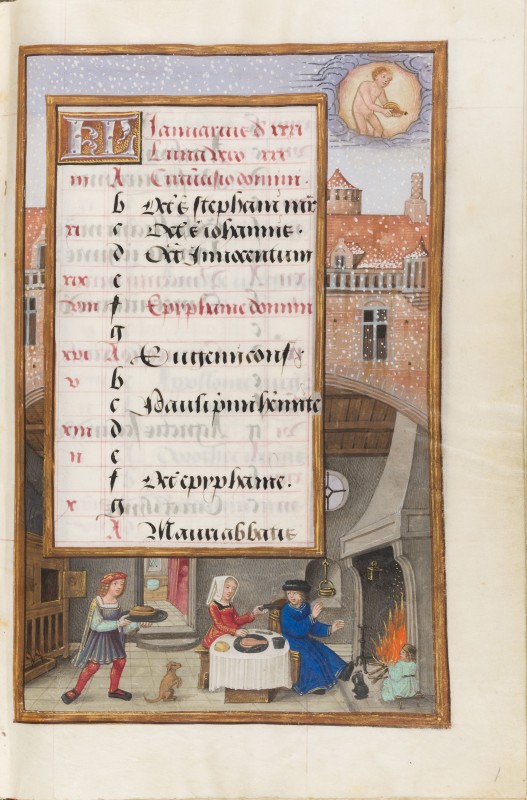 KL Januarius đ xxxi
Luna vero xxx
iii A Circuncisio domini.
b Oct̄ S stephani mr̄
xi c Oct̄ S iohannis.
d Oct̄ Innocentum
xix e
viii f Epyphanie domini
g
xvi A Eugenii conf
v b
c Pauli primi heremite
xiii d
ii e
f Oct̄ epyphanie.
x g
A Mauri abbatis